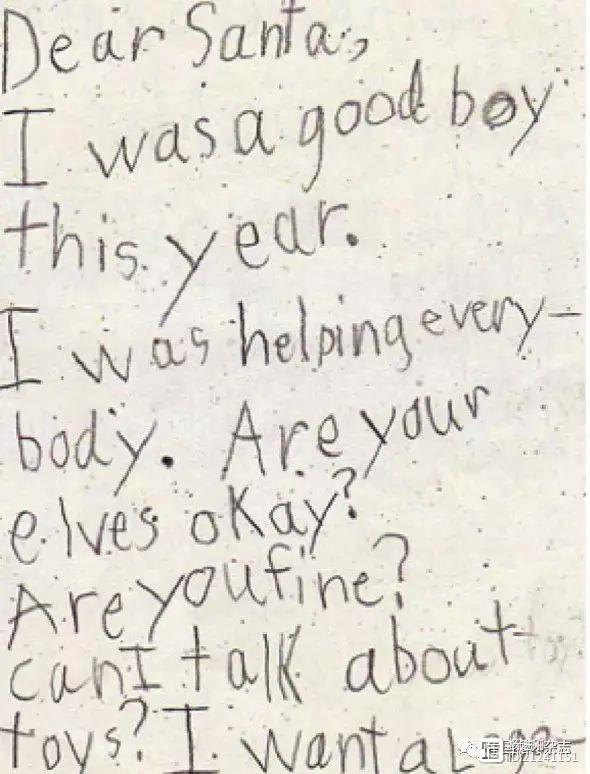 Dear Santa,
I was a good boy
this year.
I was helping every-
body. Are your
elves okay?
Are you fine?
can I talk about
toys? I want a